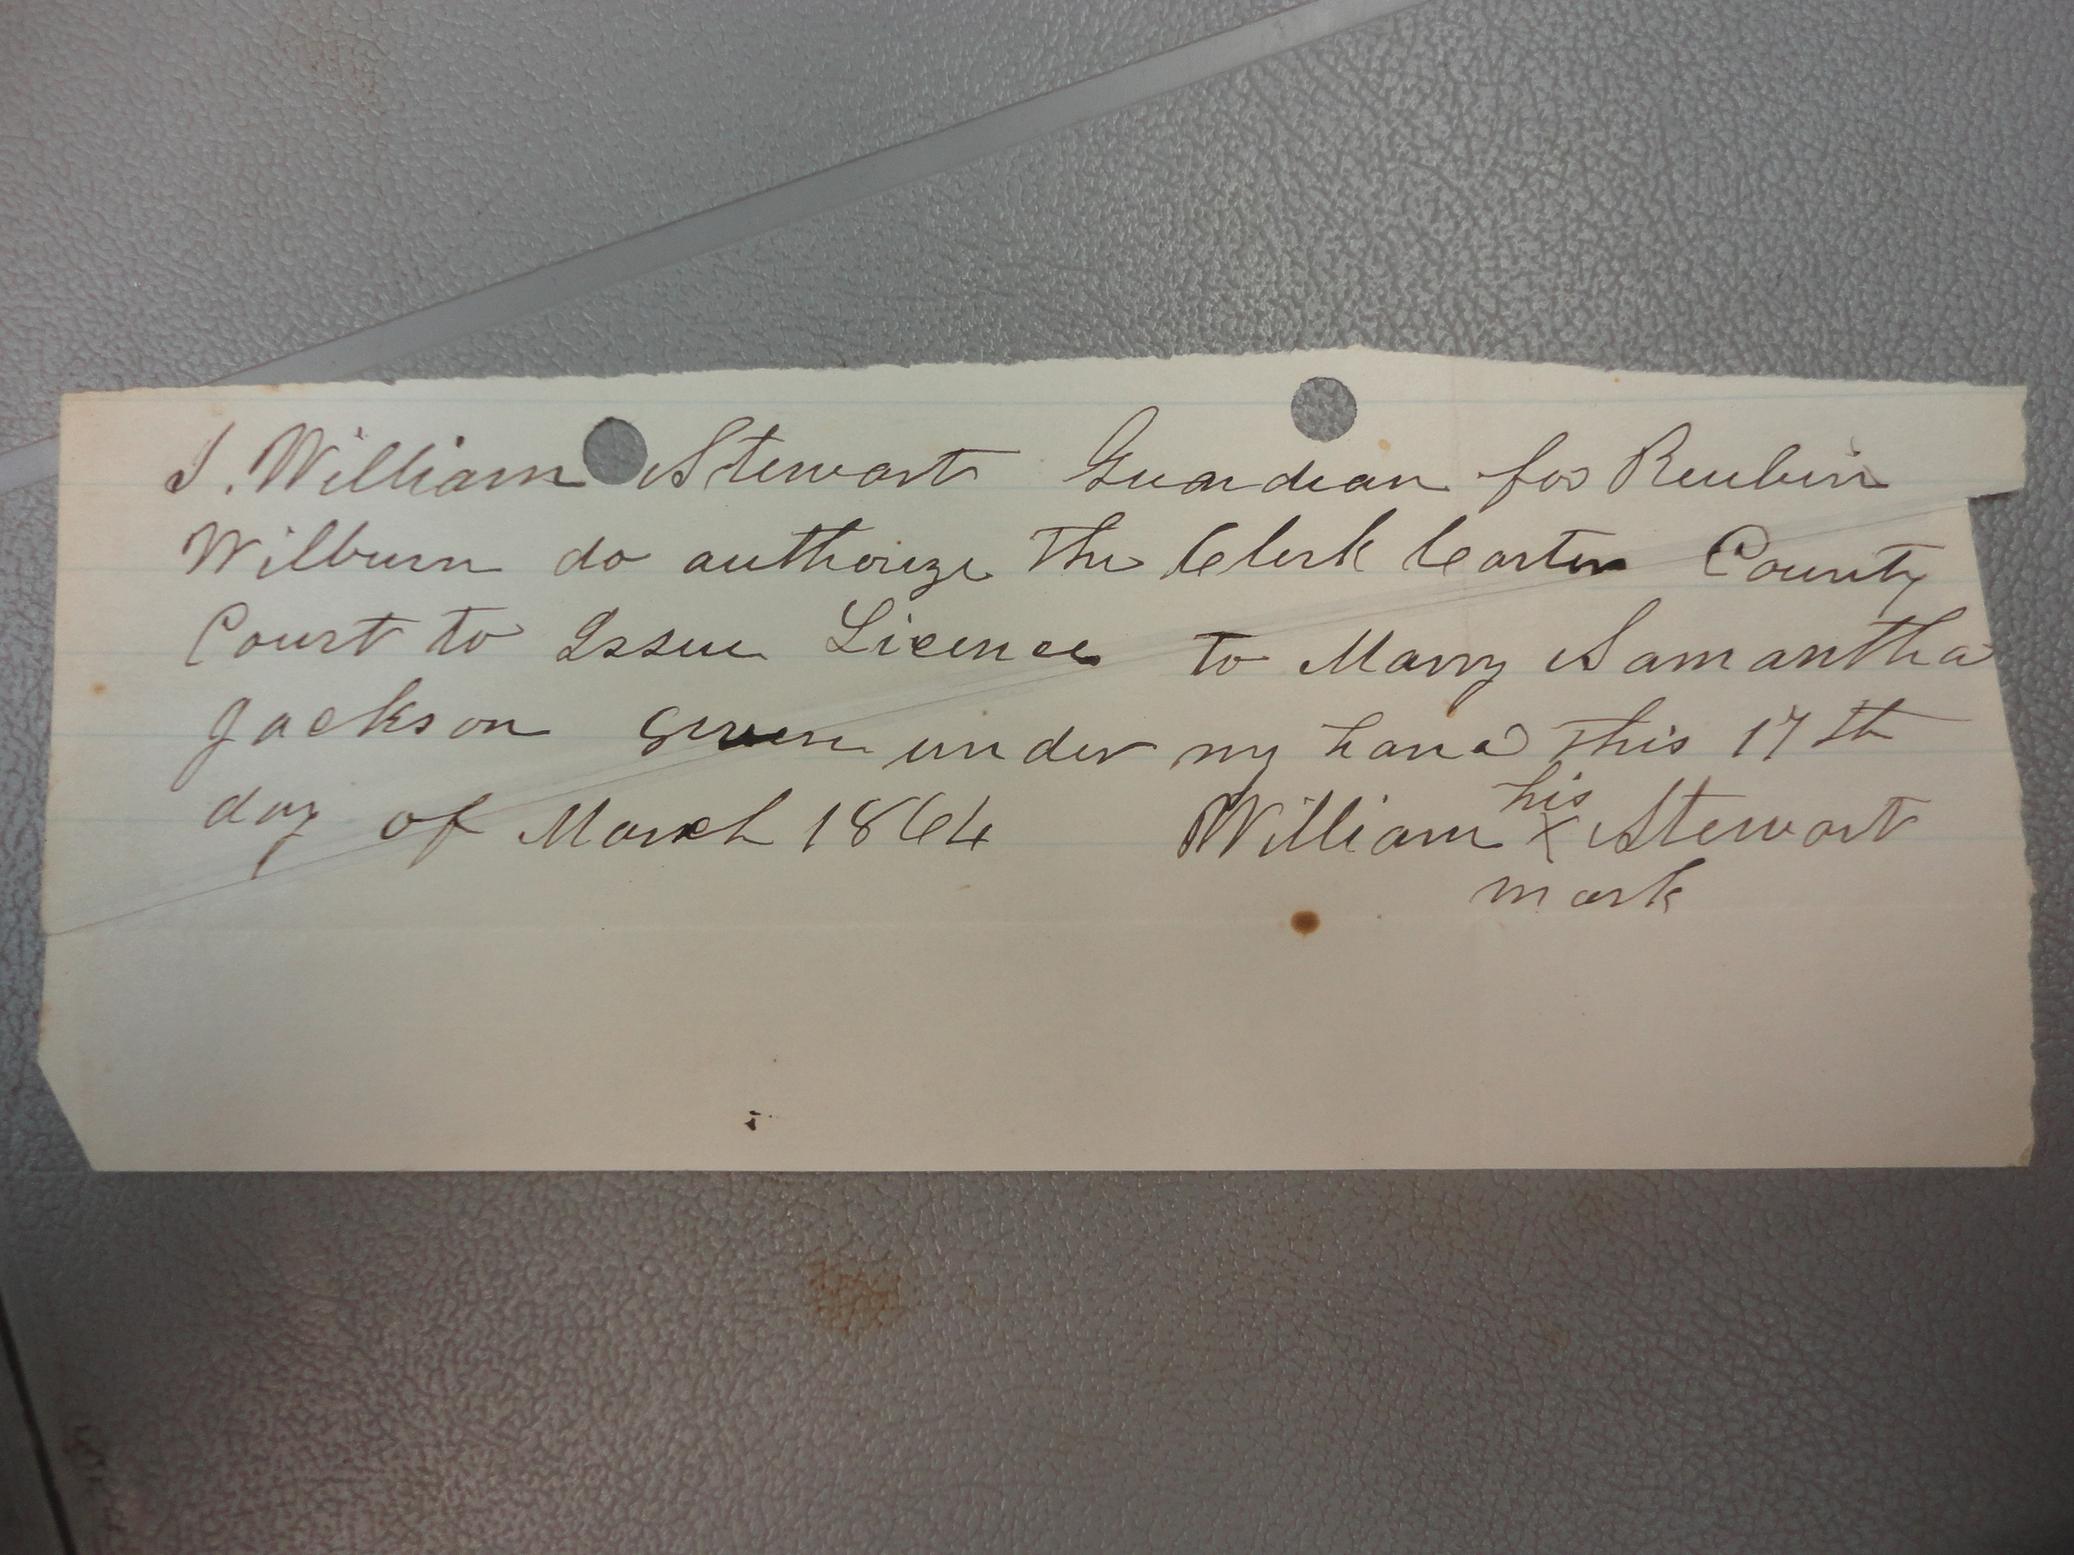 I. William Stewart Guardian for Reubin
Wilburn do authorize the Clerk Carter County
Court to Issue Licence to Marry Samantha
Jackson Given under my hand this 17th
day of March 1864 William his X Stewart
mark